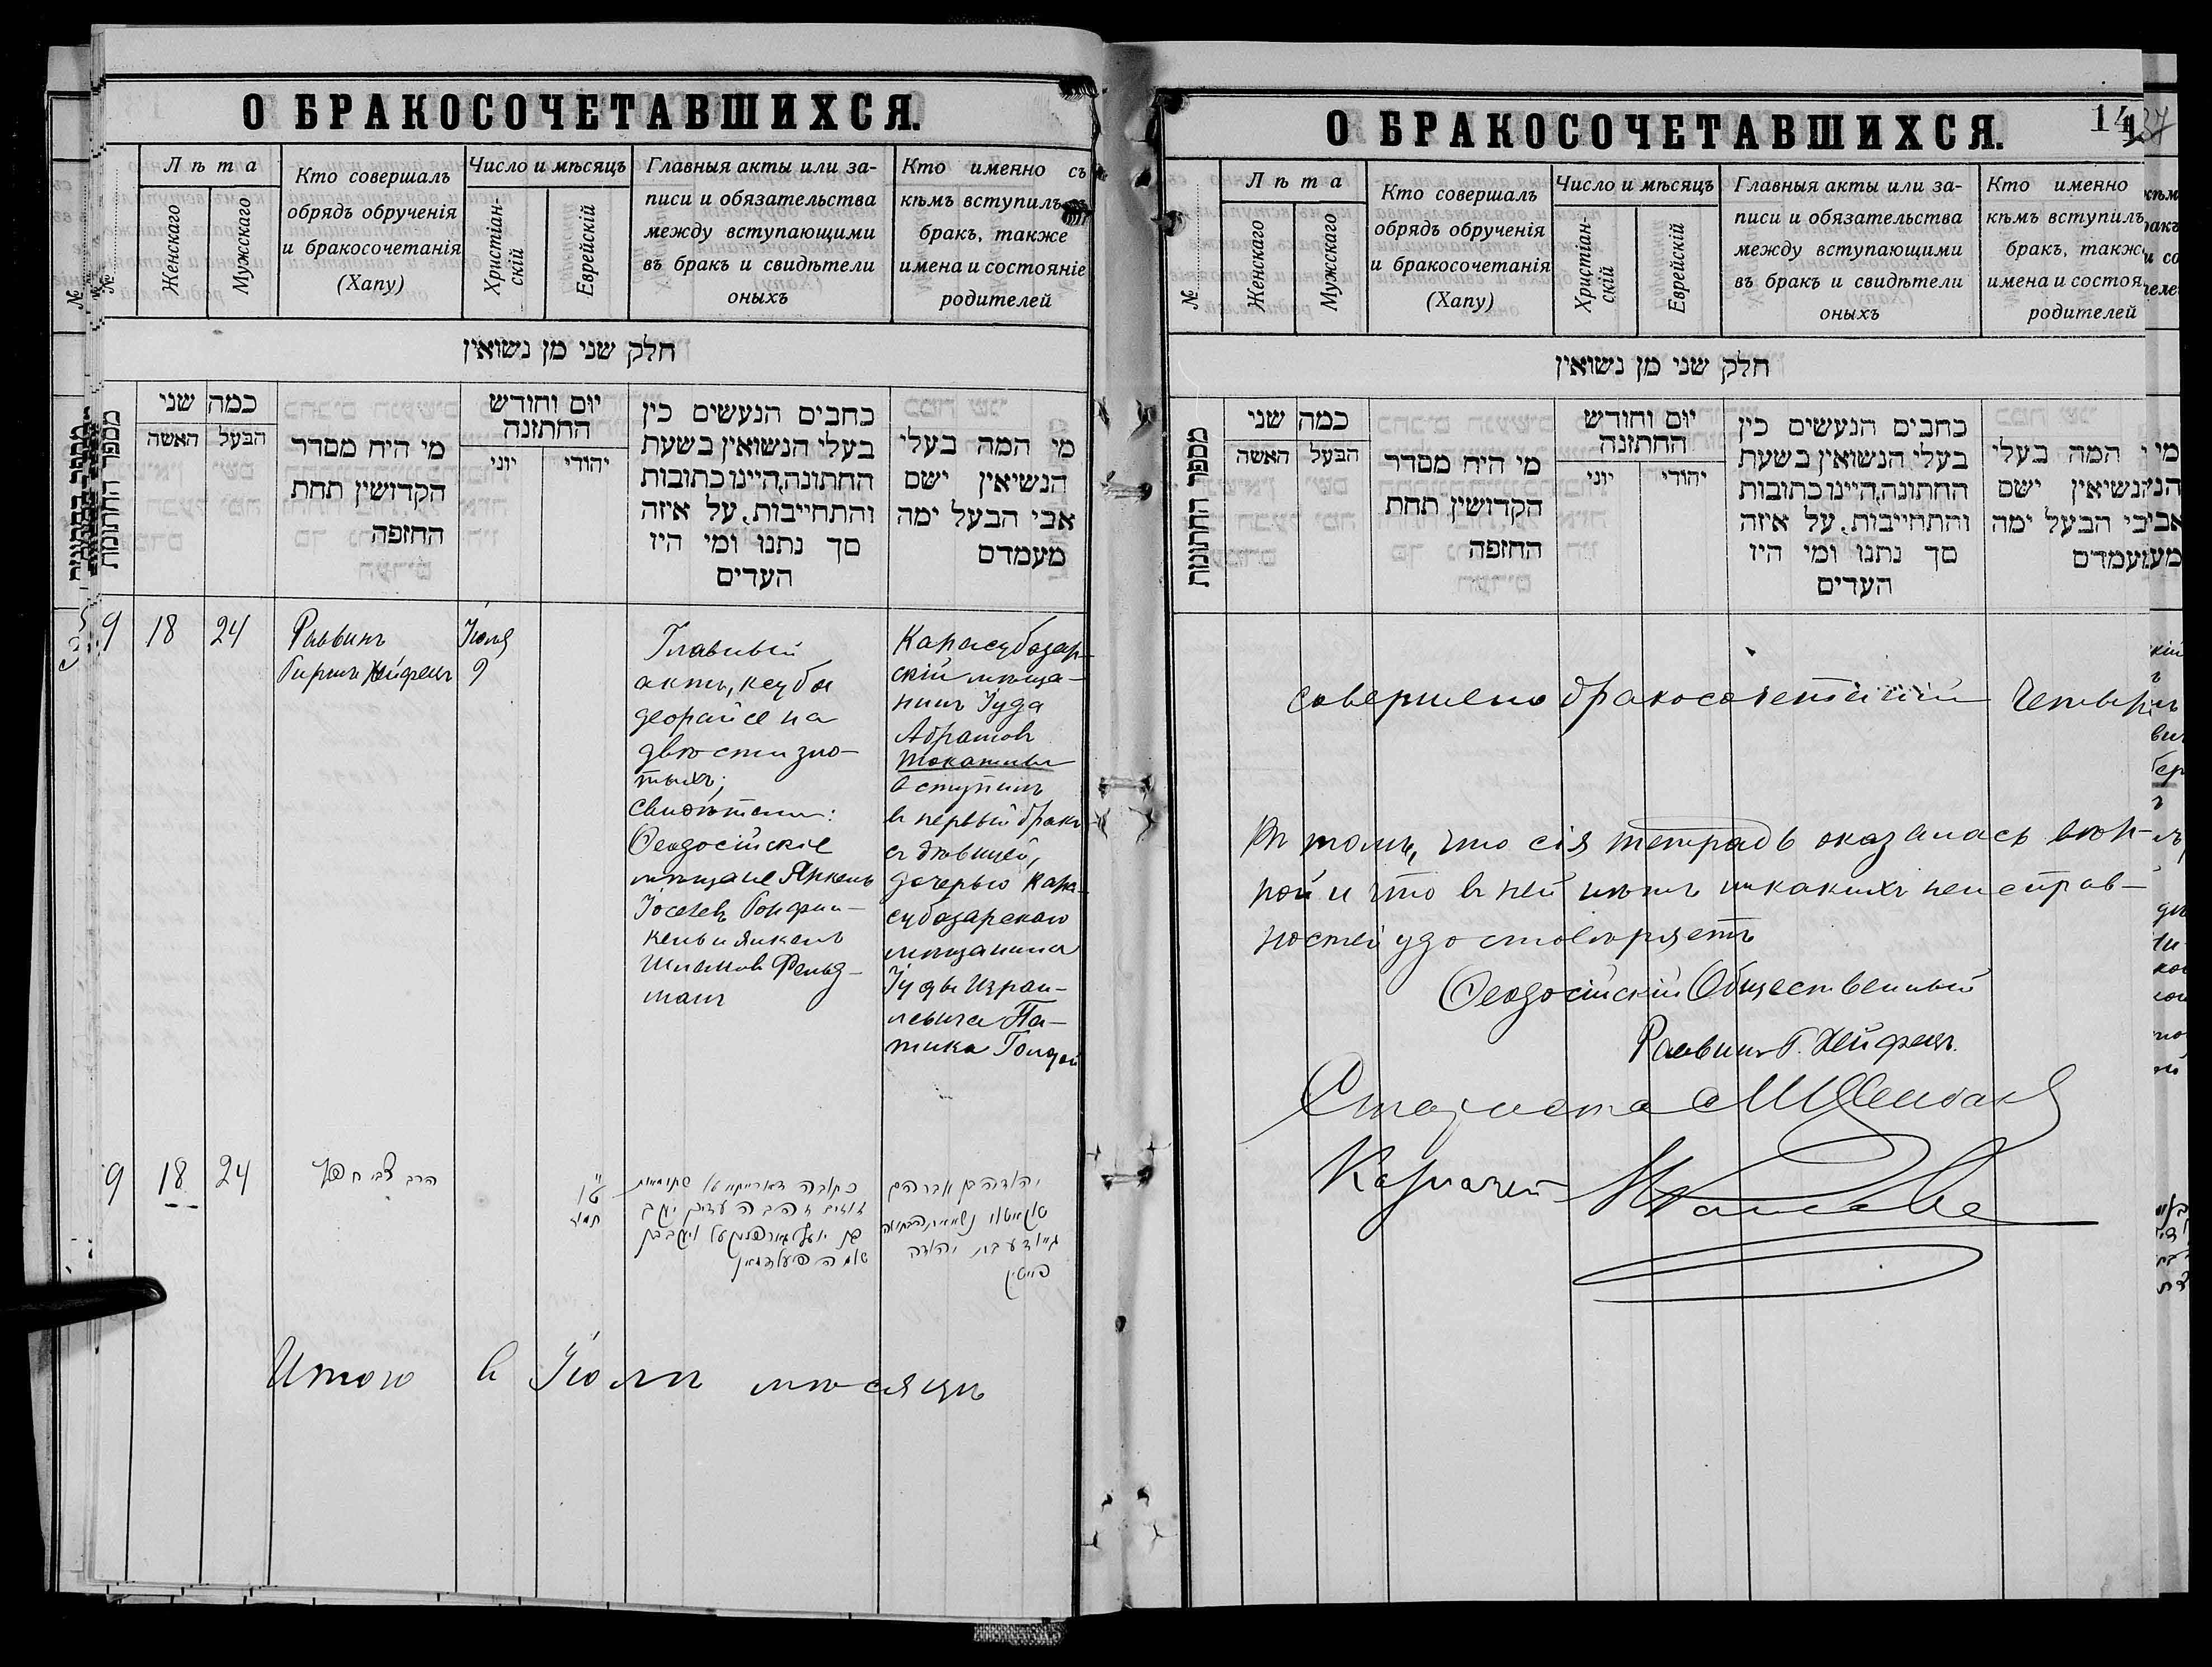 О БРАКОСОЧЕТАВШИХСЯ.
№
Лѣта
Женскаго
Мужскаго
Кто совершалъ
обрядъ обрученія
и бракосочетанія
(Хапу)
Число и мѣсяцъ
Христіан-
скій
Еврейскій
Главныя акты или за-
писи и обязательства
между вступающими
въ бракъ и свидѣтели
оныхъ
Кто именно съ
кѣмъ вступилъ
бракъ, также
имена и состояніе
родителей
חלק שני מן נשואין
מספר החתונות
כמה שני
הבעל
האשה
מי היח מסדר
הקדושין תחת
החזפה
יום וחודש
החתזנה
יוני
יהודי
כחבים הנעשים כין
בעלי הנשואין בשעת
החתונה,היינו כתובות
והתחייבות, על איזה
סך נתנו ומי היז
העדים
מי המה בעלי
הנשיאין ישם
אכי הבעל ימה
מעמדם
9
18
24
Раввинъ
Гиршъ Хейфецъ
Іюля
9
Главный
актъ, ксуба
деорайсе на
двѣсти зло-
тыхъ;
свидѣтели:
Ѳеодосійскіе
мѣщане Янкель
Іосевъ Гонфин-
кель и Янкель
Шлемовъ Фельд-
манъ
Карасубазар-
скій мѣща-
нинъ Іуда
Абрамовъ
Токатлы
вступилъ
въ первый бракъ
съ дѣвицей,
дочерью Кара-
субазарскаго
мѣщанина
Іуды Израи-
левича Па-
тика Голдой
9
18
24
הרב צבי חפץ
ט"ו
תמוז
יהודה בן אברהם
בת יהודה
Итого въ Іюлѣ мѣсяцѣ
О БРАКОСОЧЕТАВШИХСЯ.
14
37
№
Лѣта
Женскаго
Мужскаго
Кто совершалъ
обрядъ обрученія
и бракосочетанія
(Хапу)
Число и мѣсяцъ
Христіан-
скій
Еврейскій
Главныя акты или за-
писи и обязательства
между вступающими
въ бракъ и свидѣтели
оныхъ
Кто именно
кѣмъ вступилъ
бракъ, также
имена и состоя
родителей
חלק שני מן נשואין
מספר החתונות
כמה שני
הבעל
האשה
מי היח מסדר
הקדושין תחת
החזפה
יום וחודש
החתזנה
יוני
יהודי
כחבים הנעשים כין
בעלי הנשואין בשעת
החתונה,היינו כתובות
והתחייבות, על איזה
סך נתנו ומי היז
העדים
המה בעלי
נשיאין ישם
כי הבעל ימה
עמדם
совершено бракосочетаній
Въ томъ, что сія тетрадь оказалась вѣр-
ной и что въ ней нѣтъ никакихъ неисправ-
ностей удостовѣряетъ
Ѳеодосійскій Общественный
Раввинъ Г. Хейфецъ.
Староста
Казначей